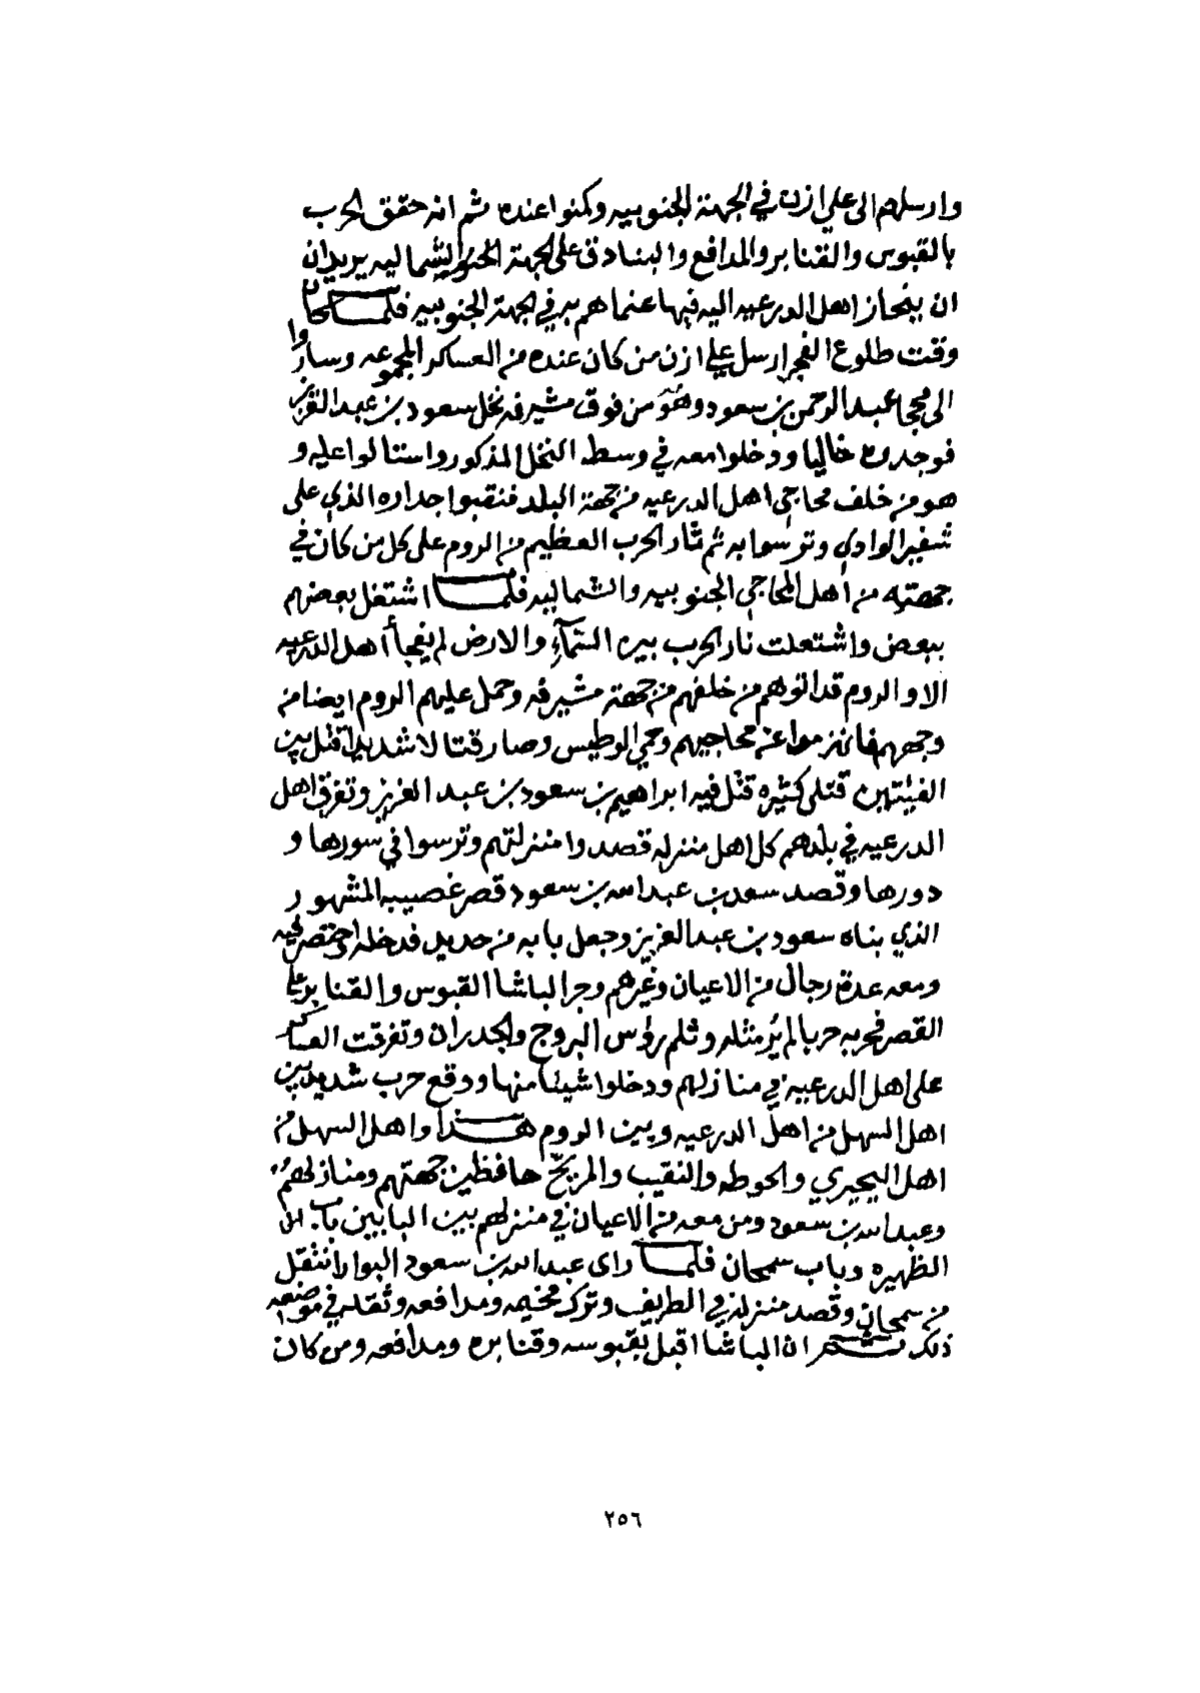 وارسلهم الى علي ازن في الجهة الجنوبيه وكمنوا عنده ثم انه حقق الحرب
بالقبوس والقنابر والمدافع والبنادق على الجهة الشماليه يريد ان
ان ينحاز اهل الدرعيه اليه فيها عنما هم به في الجهة الجنوبيه فلما كان
وقت طلوع الفجر ارسل علي ازن من كان عنده من العساكر المجموعه وساروا
الى محجا عبد الرحمن بن سعود وهو من فوق مشيرفه نخل سعود بن عبد العزيز
فوجدوه خاليا ودخلوا معه في وسط النخل المذكور واستالوا عليه و
هو من خلف محاجي اهل الدرعيه من جهة البلد فنقبوا جداره الذي على
شفير الوادي وترسوا به ثم ثار الحرب العظيم من الروم على كل من كان في
جهته من أهل المحاجي الجنوبيه والشماليه فلما اشتغل بعضهم
ببعض واشتعلت نار الحرب بين السمآء والارض لم يفجأ أهل الدرعيه
الا والروم قد اتوهم من خلفهم من جهة مشيرفه وحمل عليهم الروم ايضا من
وجههم فانهزموا عن محاجيهم وحمي الوطيس وصار قتالا شديدا قتل بين
الفيئتين قتلى كثيره قتل فيه ابراهيم بن سعود بن عبد العزيز وتفرق اهل
الدرعيه في بلدهم كل اهل منزله قصدوا منزلتهم وترسوا في سورها و
دورها وقصد سعد بن عبد الله بن سعود قصر غصيبه المشهور
الذي بناه سعود بن عبد العزيز وجعل بابه من حديد فدخله واحتصر فيه
ومعه عدة رجال من الاعيان وغيرهم وجر الباشا القبوس والقنابر على
القصر فحربه حربا لم يُر مثله وثلم رؤس البروج والجدران وتفرقت العساكر
على اهل الدرعيه في منازلهم ودخلوا شيئا منها ووقع حرب شديد بين
اهل السهل من اهل الدرعيه وبين الروم هذا واهل السهل من
اهل البجيري والحوطه والنقيب والمريح حافظين جهتهم ومنازلهم
وعبد الله بن سعود ومن معه من الاعيان في منزلهم بين البابين باب
الظهيره وباب سمحان فلما راى عبد الله بن سعود البوار انتقل
من سمحان وقصد منزله في الطريف وترك مخيمه ومدافعه وثقله في موضعه
ذلك ثم ان الباشا اقبل بقبوسه وقنابره ومدافعه ومن كان
٢٥٦